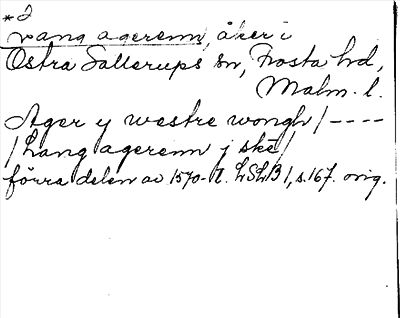 *2
vang agerenn, åker i
Östra Sallerups sn, Frosta hd,
Malm. l.
Ager y westre wongh / ----
/ Lang agerenn j ske /
förra delen av 1570-t. LSLB 1, s.167. orig.